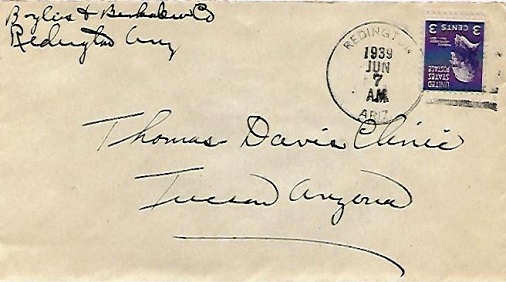 Bayliss & Berkalew Co
Redington Ariz
REDINGTON
1939
JUN
7
A.M.
ARIZ.
3 CENTS 3
UNITED
STATES
POSTAGE
Thomas-Davis Clinic
Tucson Arizona